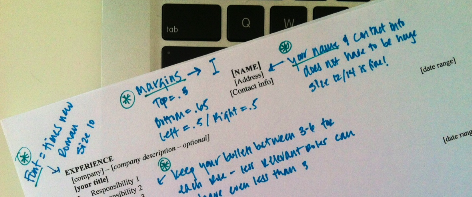 tab
Q
W
E
* margins → I
Top = .5
Bottom = .65
Left = .5 / Right = .5
* your name & contact info
does not have to be huge
size 12/14 is fine!
[NAME]
[Address]
[Contact info]
[date range]
* Font = times new
Roman
size 10
EXPERIENCE
[company] – [company description – optional]
[your title]
Responsibility 1
[date
* keep your bullets between 3-6 for
each role – less relevant roles can
have even less than 3